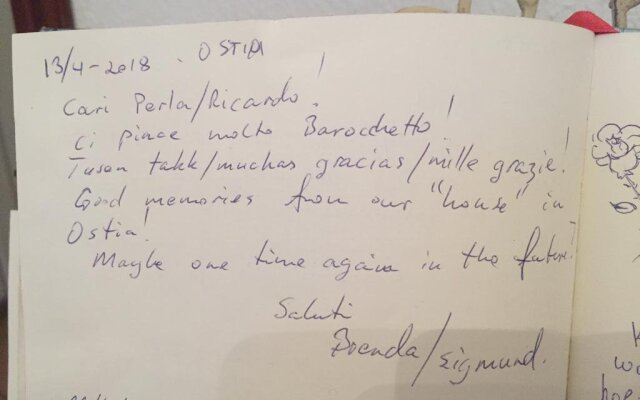 13/4-2018 . OSTIA
Cari Perla/Ricardo!
Ci piace molto Barocchetto!
Tusen takk/muchas gracias/mille grazie!
Good memories from our "house" in
Ostia!
Maybe one time again in the future?
Saluti
Brenda/Sigmund.